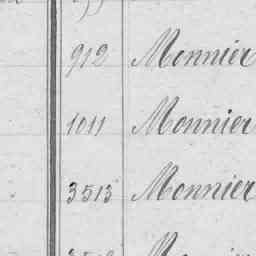 912 Monnier
1011 Monnier
3515 Monnier